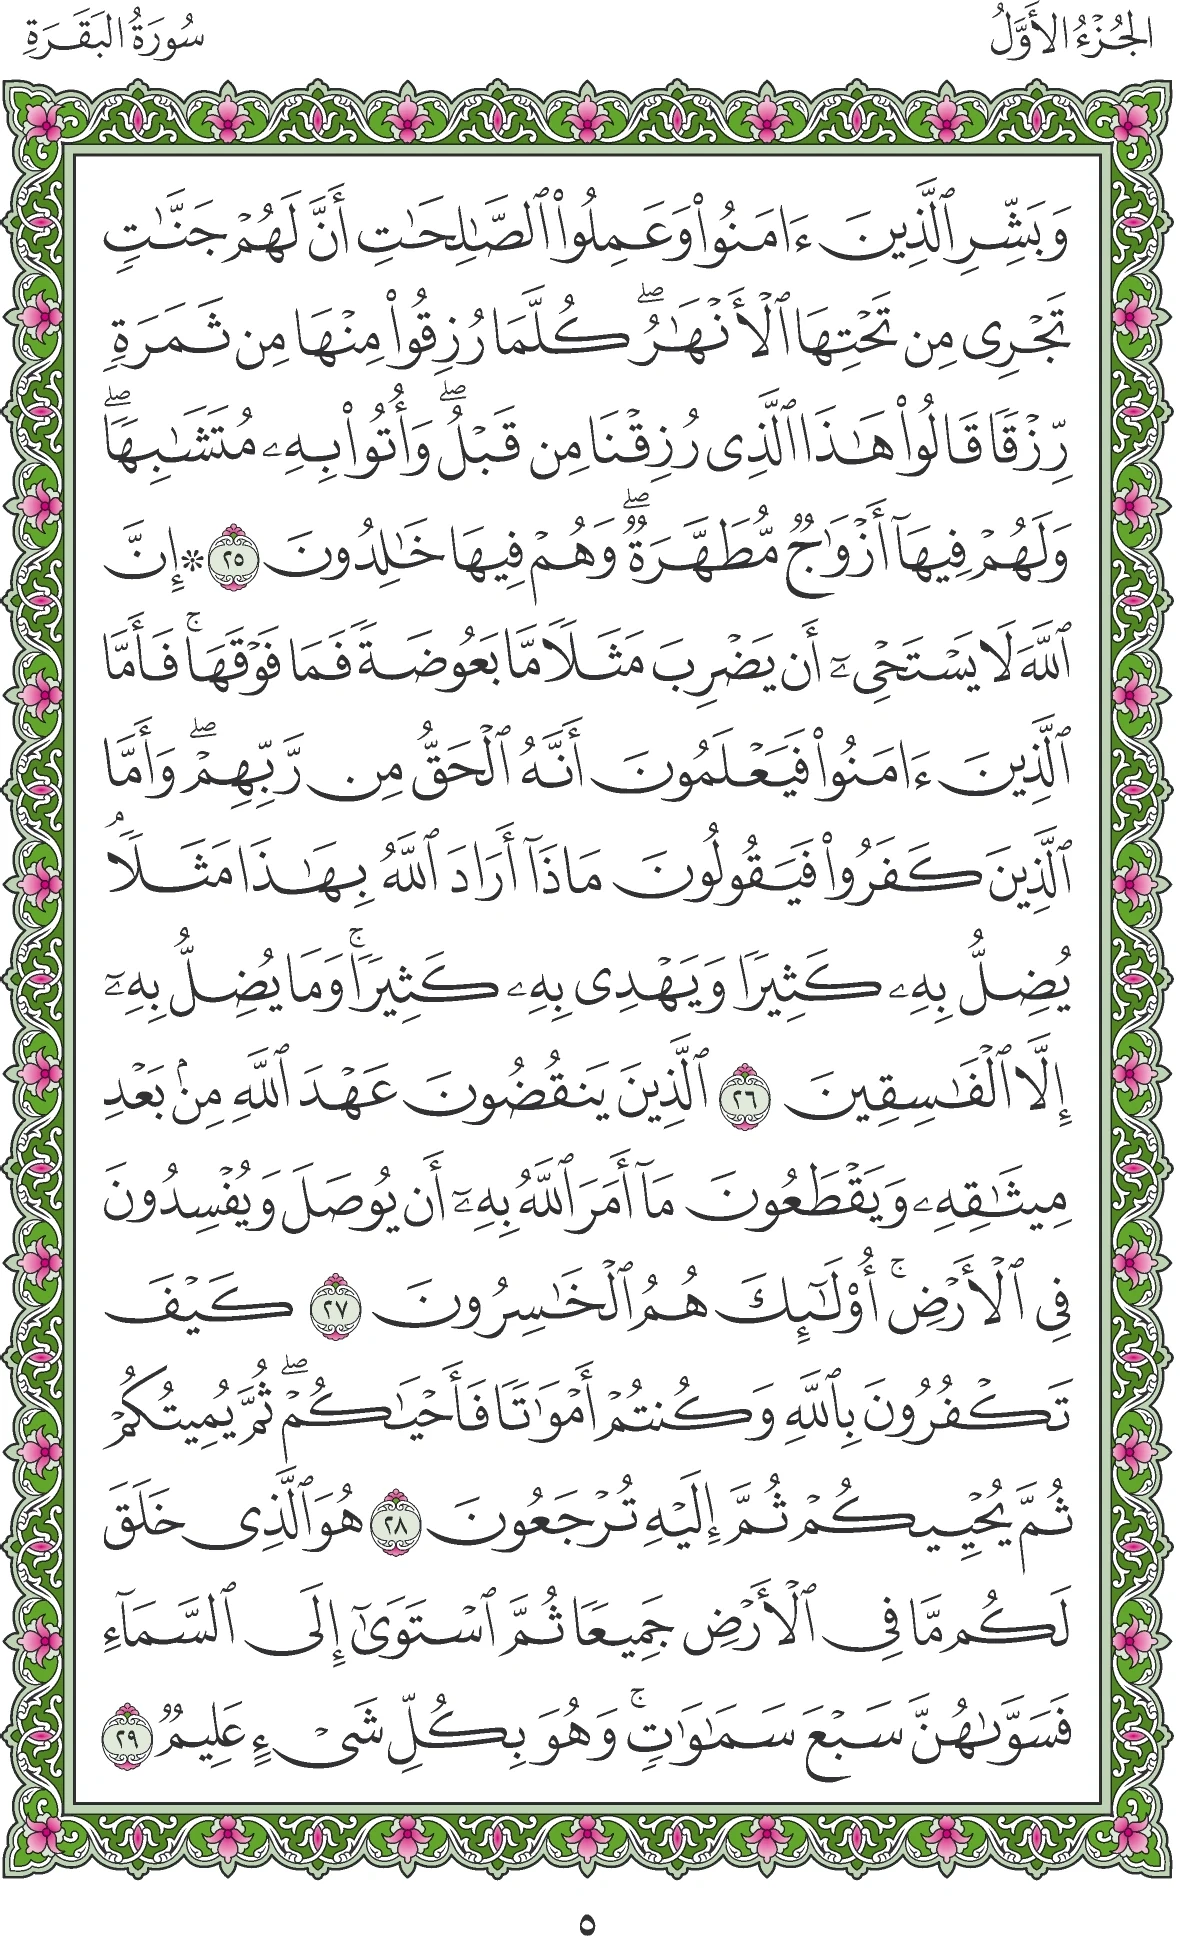 الجُزْءُ الأَوَّلُ
سُورَةُ البَقَرَةِ
وَبَشِّرِ ٱلَّذِينَ ءَامَنُواْ وَعَمِلُواْ ٱلصَّٰلِحَٰتِ أَنَّ لَهُمۡ جَنَّٰتٖ
تَجۡرِي مِن تَحۡتِهَا ٱلۡأَنۡهَٰرُۖ كُلَّمَا رُزِقُواْ مِنۡهَا مِن ثَمَرَةٖ
رِّزۡقٗا قَالُواْ هَٰذَا ٱلَّذِي رُزِقۡنَا مِن قَبۡلُۖ وَأُتُواْ بِهِۦ مُتَشَٰبِهٗاۖ
وَلَهُمۡ فِيهَآ أَزۡوَٰجٞ مُّطَهَّرَةٞۖ وَهُمۡ فِيهَا خَٰلِدُونَ ٢٥ ۞ إِنَّ
ٱللَّهَ لَا يَسۡتَحۡيِۦٓ أَن يَضۡرِبَ مَثَلٗا مَّا بَعُوضَةٗ فَمَا فَوۡقَهَاۚ فَأَمَّا
ٱلَّذِينَ ءَامَنُواْ فَيَعۡلَمُونَ أَنَّهُ ٱلۡحَقُّ مِن رَّبِّهِمۡۖ وَأَمَّا
ٱلَّذِينَ كَفَرُواْ فَيَقُولُونَ مَاذَآ أَرَادَ ٱللَّهُ بِهَٰذَا مَثَلٗاۘ
يُضِلُّ بِهِۦ كَثِيرٗا وَيَهۡدِي بِهِۦ كَثِيرٗاۚ وَمَا يُضِلُّ بِهِۦٓ
إِلَّا ٱلۡفَٰسِقِينَ ٢٦ ٱلَّذِينَ يَنقُضُونَ عَهۡدَ ٱللَّهِ مِنۢ بَعۡدِ
مِيثَٰقِهِۦ وَيَقۡطَعُونَ مَآ أَمَرَ ٱللَّهُ بِهِۦٓ أَن يُوصَلَ وَيُفۡسِدُونَ
فِي ٱلۡأَرۡضِۚ أُوْلَٰٓئِكَ هُمُ ٱلۡخَٰسِرُونَ ٢٧ كَيۡفَ
تَكۡفُرُونَ بِٱللَّهِ وَكُنتُمۡ أَمۡوَٰتٗا فَأَحۡيَٰكُمۡۖ ثُمَّ يُمِيتُكُمۡ
ثُمَّ يُحۡيِيكُمۡ ثُمَّ إِلَيۡهِ تُرۡجَعُونَ ٢٨ هُوَ ٱلَّذِي خَلَقَ
لَكُم مَّا فِي ٱلۡأَرۡضِ جَمِيعٗا ثُمَّ ٱسۡتَوَىٰٓ إِلَى ٱلسَّمَآءِ
فَسَوَّىٰهُنَّ سَبۡعَ سَمَٰوَٰتٖۚ وَهُوَ بِكُلِّ شَيۡءٍ عَلِيمٞ ٢٩
٥